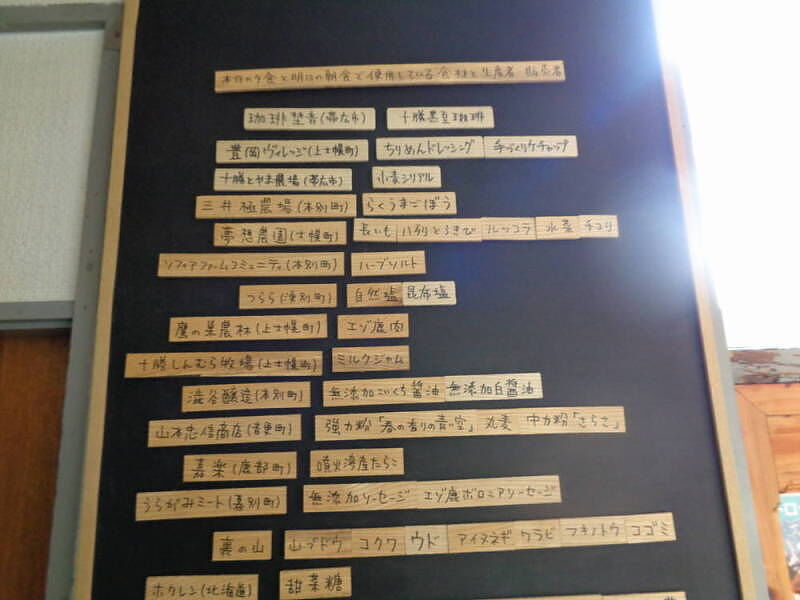 本日の夕食と明日の朝食で使用している食材と生産者 販売者
珈琲野香(帯広市) 十勝黒豆珈琲
豊岡ヴィレッジ(上士幌町) ちりめんドレッシング 手づくりケチャップ
十勝とやま農場(帯広市) 小麦シリアル
三井極農場(本別町) らくうまごぼう
夢想農園(士幌町) 長いも 八列とうきび ルッコラ 水菜 チコリ
ソフィアファームコミュニティ(本別町) ハーブソルト
つらら(浦幌町) 自然塩 昆布塩
鷹の巣農林(上士幌町) エゾ鹿肉
十勝しんむら牧場(上士幌町) ミルクジャム
渋谷醸造(本別町) 無添加こいくち醤油 無添加白醤油
山本忠信商店(音更町) 強力粉「春の香りの青い空」 丸麦 中力粉「きらきこ」
嘉楽(鹿部町) 噴火湾産たらこ
うらがみミート(幕別町) 無添加ソーセージ エゾ鹿ボロニアソーセージ
裏の山 山ブドウ コクワ ウド アイヌネギ ワラビ フキノトウ コゴミ
ホクレン(北海道) 甜菜糖